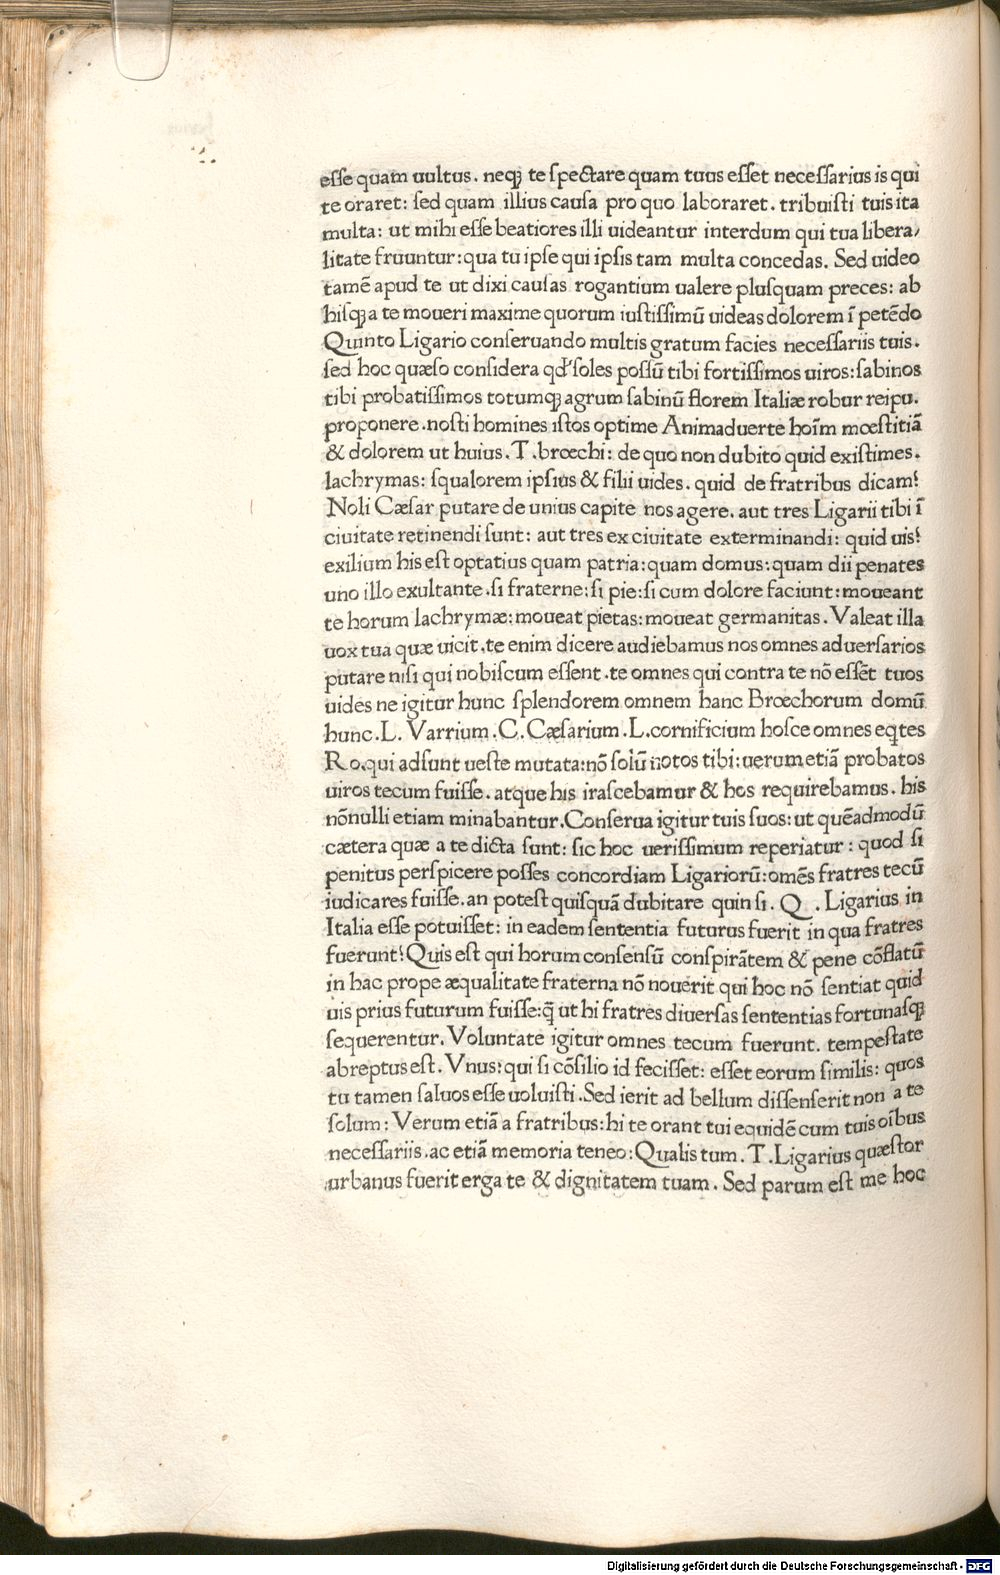 eſſe quam uultus. neqꝫ te ſpectare quam tuus eſſet neceſſarius is qui
te oraret: ſed quam illius cauſa pro quo laboraret. tribuiſti tuis ita
multa: ut mihi eſſe beatiores illi uideantur interdum qui tua libera/
litate fruuntur: qua tu ipſe qui ipſis tam multa concedas. Sed uideo
tamē apud te ut dixi cauſas rogantium ualere pluſquam preces: ab
hiſqꝫ a te moueri maxime quorum iuſtiſſimū uideas dolorem ī petēdo
Quinto Ligario conſeruando multis gratum facies neceſſariis tuis.
ſed hoc quæſo conſidera qd' ſoles poſſū tibi fortiſſimos uiros: ſabinos
tibi probatiſſimos totumqꝫ agrum ſabinū florem Italiæ robur reipu.
proponere. noſti homines iſtos optime Animaduerte hoīm mœſtitiā
& dolorem ut huius. T. brœchi: de quo non dubito quid exiſtimes.
lachrymas: ſqualorem ipſius & filii uides. quid de fratribus dicam?
Noli Cæſar putare de unius capite nos agere. aut tres Ligarii tibi ī
ciuitate retinendi ſunt: aut tres ex ciuitate exterminandi: quid uis?
exilium his eſt optatius quam patria: quam domus: quam dii penates
uno illo exultante. ſi fraterne: ſi pie: ſi cum dolore faciunt: moueant
te horum lachrymæ: moueat pietas: moueat germanitas. Valeat illa
uox tua quæ uicit. te enim dicere audiebamus nos omnes aduerſarios
putare niſi qui nobiſcum eſſent. te omnes qui contra te nō eſſēt tuos
uides ne igitur hunc ſplendorem omnem hanc Brœchorum domū
hunc. L. Varrium. C. Cæſarium. L. cornificium hoſce omnes eqꝫtes
Ro. qui adſunt ueſte mutata: nō ſolū notos tibi: uerum etiā probatos
uiros tecum fuiſſe. atque his iraſcebamur & hos requirebamus. his
nōnulli etiam minabantur. Conſerua igitur tuis ſuos: ut quēadmodū
cætera quæ a te dicta ſunt: ſic hoc ueriſſimum reperiatur: quod ſi
penitus perſpicere poſſes concordiam Ligariorū: omēs fratres tecū
iudicares fuiſſe. an poteſt quiſquā dubitare quin ſi. Q. Ligarius in
Italia eſſe potuiſſet: in eadem ſententia futurus fuerit in qua fratres
fuerunt? Quis eſt qui horum conſenſū conſpirātem & pene cōflatū
in hac prope æqualitate fraterna nō nouerit qui hoc nō ſentiat quid
uis prius futurum fuiſſe: q̄ ut hi fratres diuerſas ſententias fortunaſqꝫ
ſequerentur. Voluntate igitur omnes tecum fuerunt. tempeſtate
abreptus eſt. Vnus: qui ſi cōſilio id feciſſet: eſſet eorum ſimilis: quos
tu tamen ſaluos eſſe uoluiſti. Sed ierit ad bellum diſſenſerit non a te
ſolum: Verum etiā a fratribus: hi te orant tui equidē cum tuis oībus
neceſſariis. ac etiā memoria teneo: Qualis tum. T. Ligarius quæſtor
urbanus fuerit erga te & dignitatem tuam. Sed parum eſt me hoc
Digitalisierung gefördert durch die Deutsche Forschungsgemeinschaft - DFG